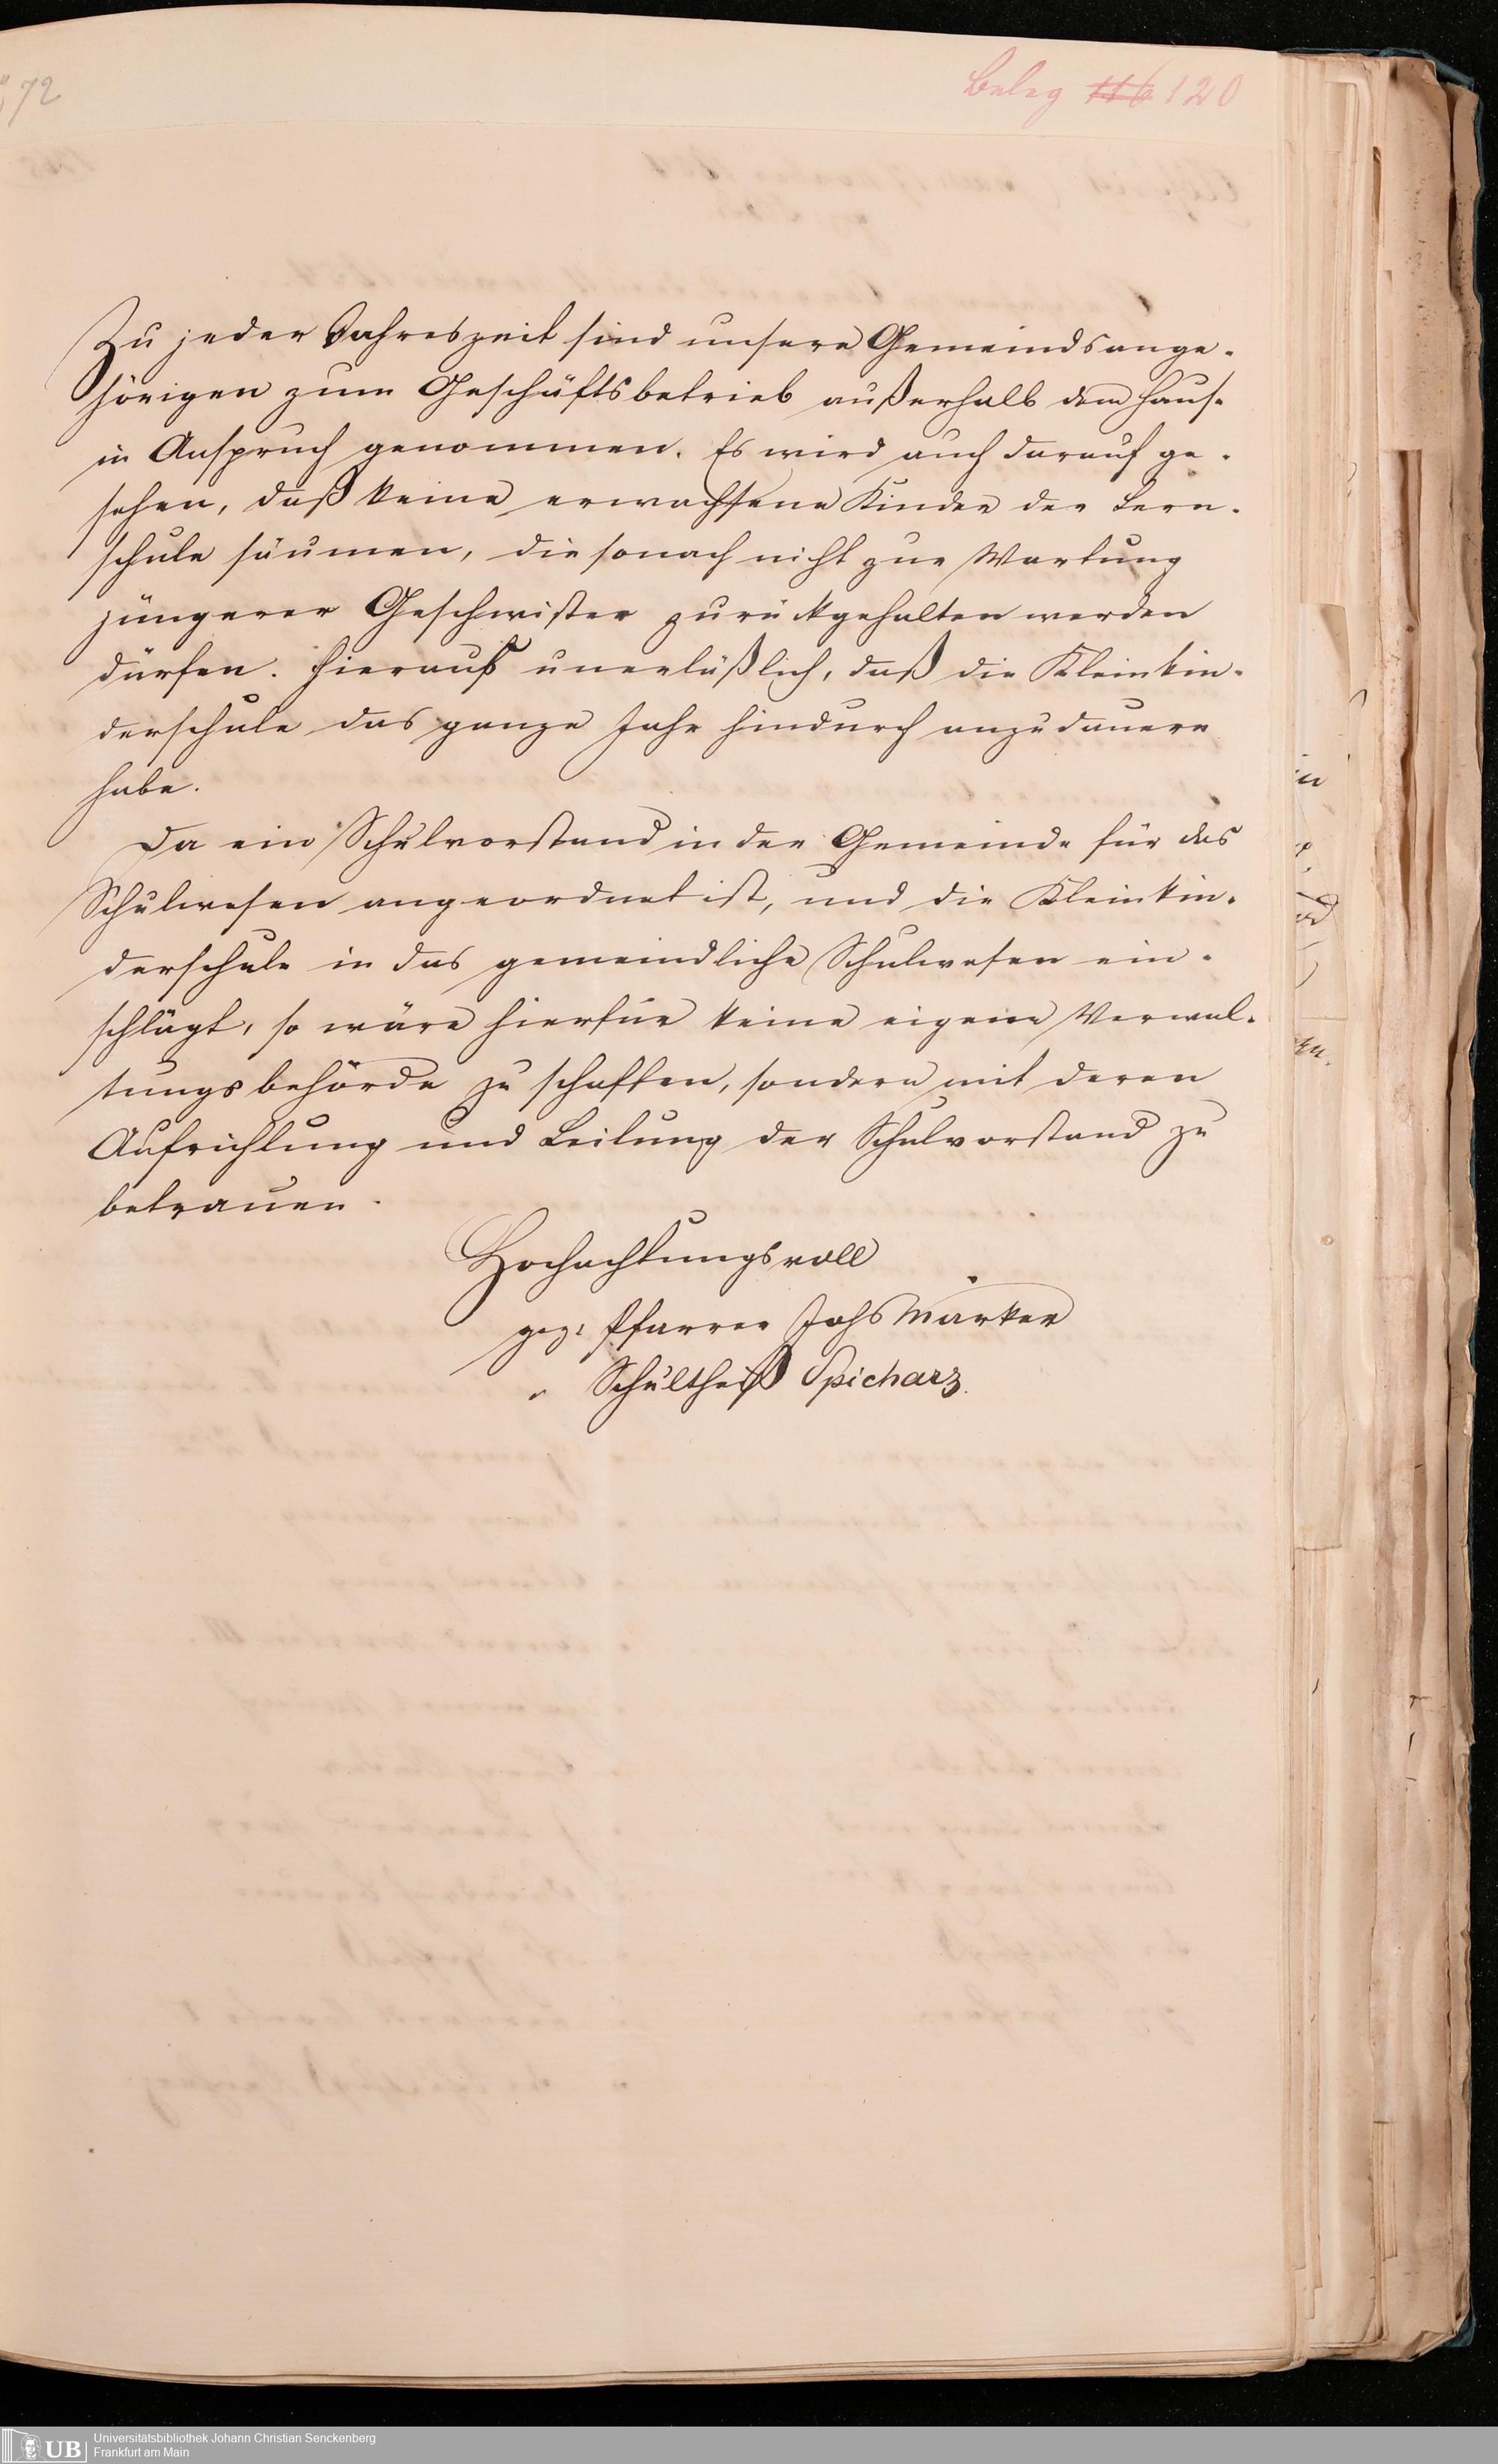 72
Beleg 116 120
Zu jeder Jahreszeit sind unsere Gemeindsange-
hörigen zum Geschäftsbetrieb außerhalb dem Hause
in Anspruch genommen. Es wird auch darauf ge-
sehen, daß keine erwachsene Kinder der Lern-
schule säumen, die sonach nicht zur Wartung
jüngerer Geschwister zurückgehalten werden
dürfen. Hierauß unerläßlich, daß die Kleinkin-
derschule das ganze Jahr hindurch anzudauern
habe.
Da ein Schulvorstand in der Gemeinde für das
Schulwesen angeordnet ist, und die Kleinkin-
derschule in das gemeindliche Schulwesen ein-
schlägt, so wäre hierfür keine eigene Verwal-
tungsbehörde zu schaffen, sondern mit deren
Aufrichtung und Leitung der Schulvorstand zu
betrauen.
Hochachtungsvoll
gez: Pfarrer Johs Märker
" Schultheiß Spicharz.
UB
Universitätsbibliothek Johann Christian Senckenberg
Frankfurt am Main